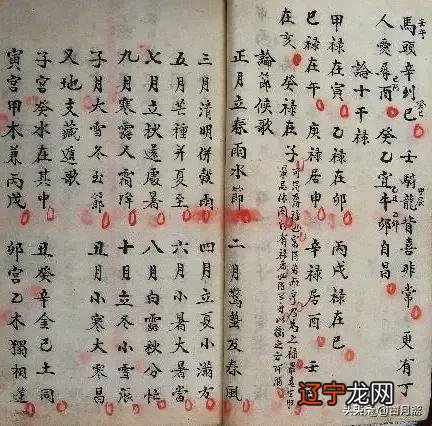 馬頭辛 巳 壬騎龍背喜非常 更有丁
壬午
甲辰
人愛尋酉 癸乙宜牛卯自昌
乙丑 乙卯
論十干禄
甲禄在寅 乙禄在卯 丙戊禄在巳
巳禄在午 庚禄居申 辛禄居酉 壬
在亥 癸禄在子
論節候歌
正月立春雨水節 二月驚蟄及春風
三月清明併穀雨 四月立夏小滿方
五月芒種并夏至 六月小暑大暑當
七月立秋還處暑 八月白露秋分忙
九月寒露又霜降 十月立冬小雪張
子月大雪冬至節 丑月小寒大寒昌
又地支藏遁歌
子宮癸水在其中 丑癸辛金己土同
寅宮甲木兼丙戊 卯宮乙木獨相逢
辽宁龙网